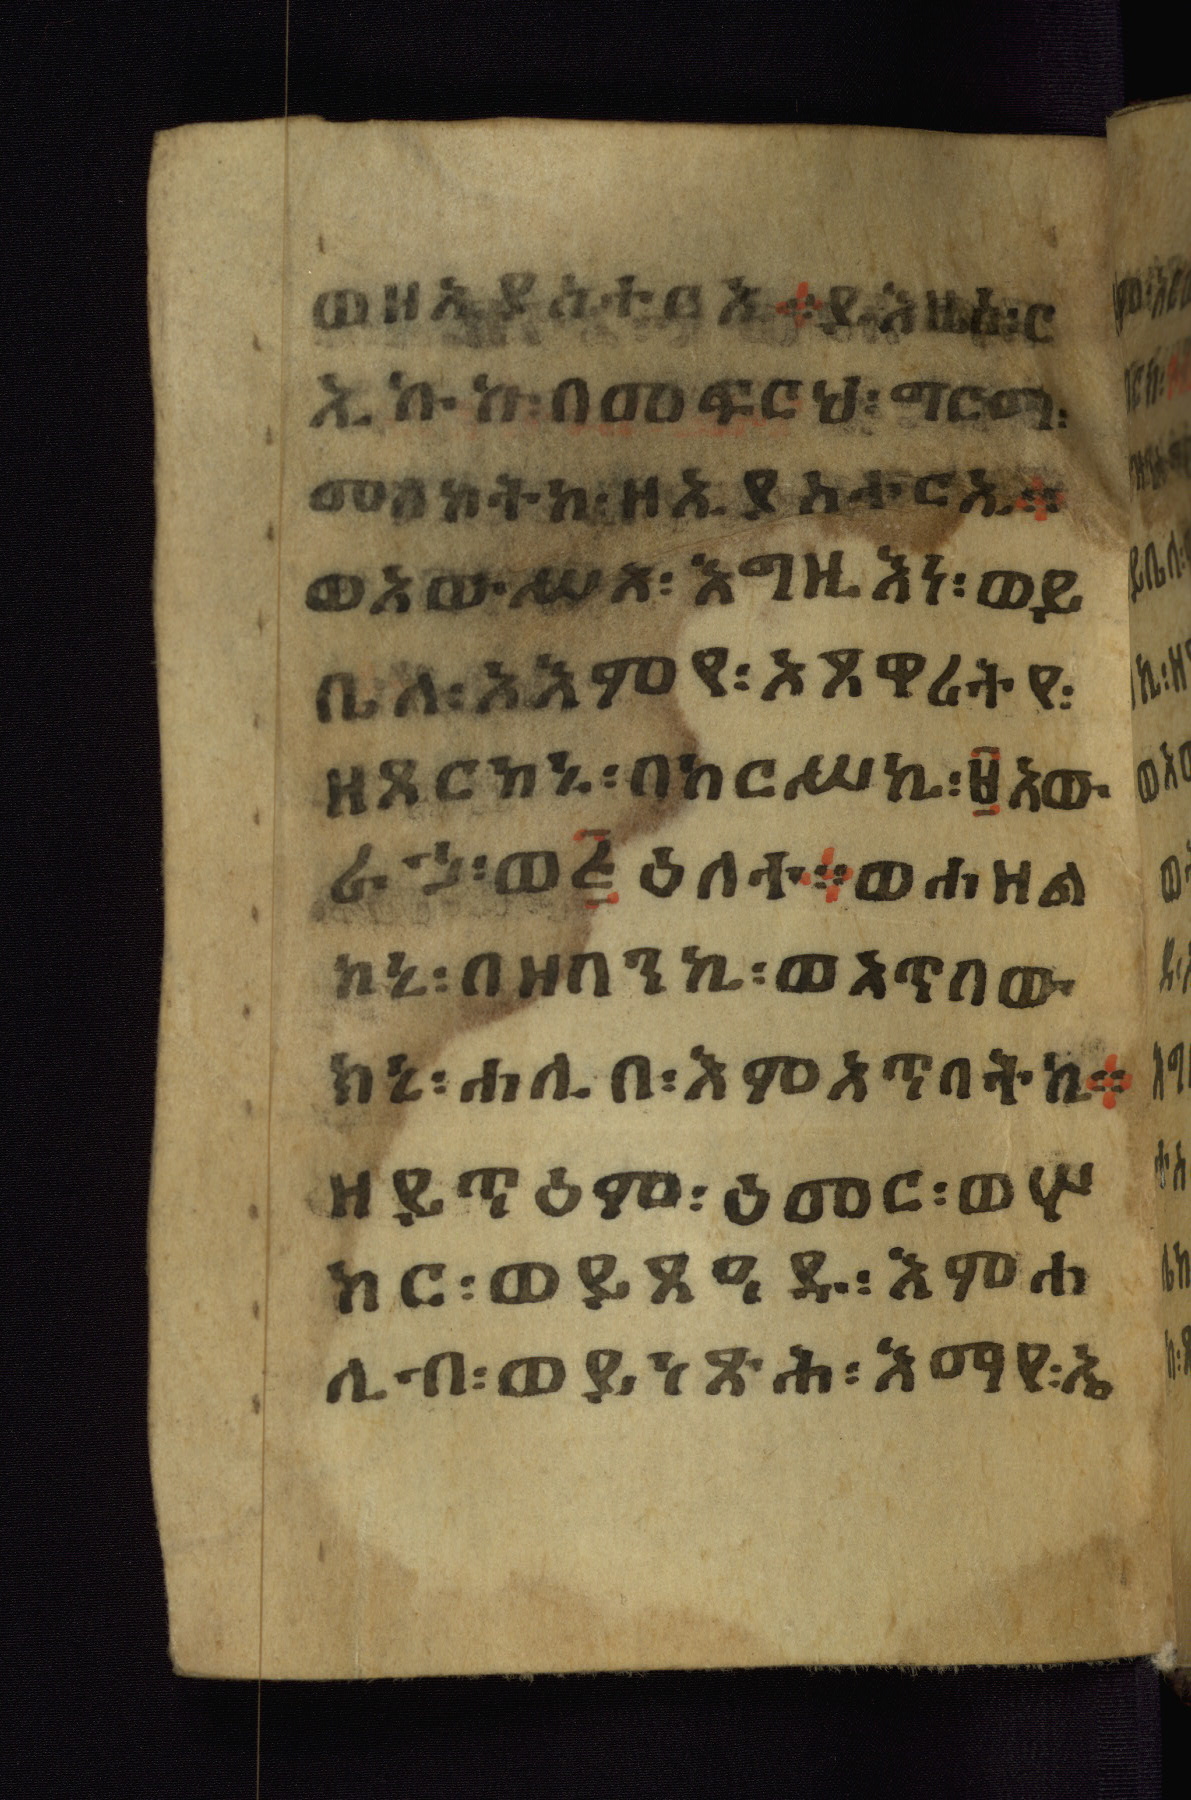 ወዘኢያስተርኢ፨ያአዝዞ፡ር
ኢኩኩ፡በመፍርህ፡ግርማ፡
መለኮትከ፡ዘኢያስተርኢ፨
ወአውሥአ፡እግዚእነ፡ወይ
ቤላ፡አእምየ፡እጸዋሪትየ፡
ዘጾርክኒ፡በከርሥኪ፡፱አው
ራኀ፡ወ፭ዕለተ፨ወሐዘል
ክኒ፡በዘባንኪ፡ወአጥበው
ክኒ፡ሐሊበ፡እምአጥባትኪ፨
ዘይጥዕም፡ዕመር፡ወሦ
ከር፡ወይጸዓዱ፡እምሐ
ሊብ፡ወይነጽሕ፡እማየ፡ኤ